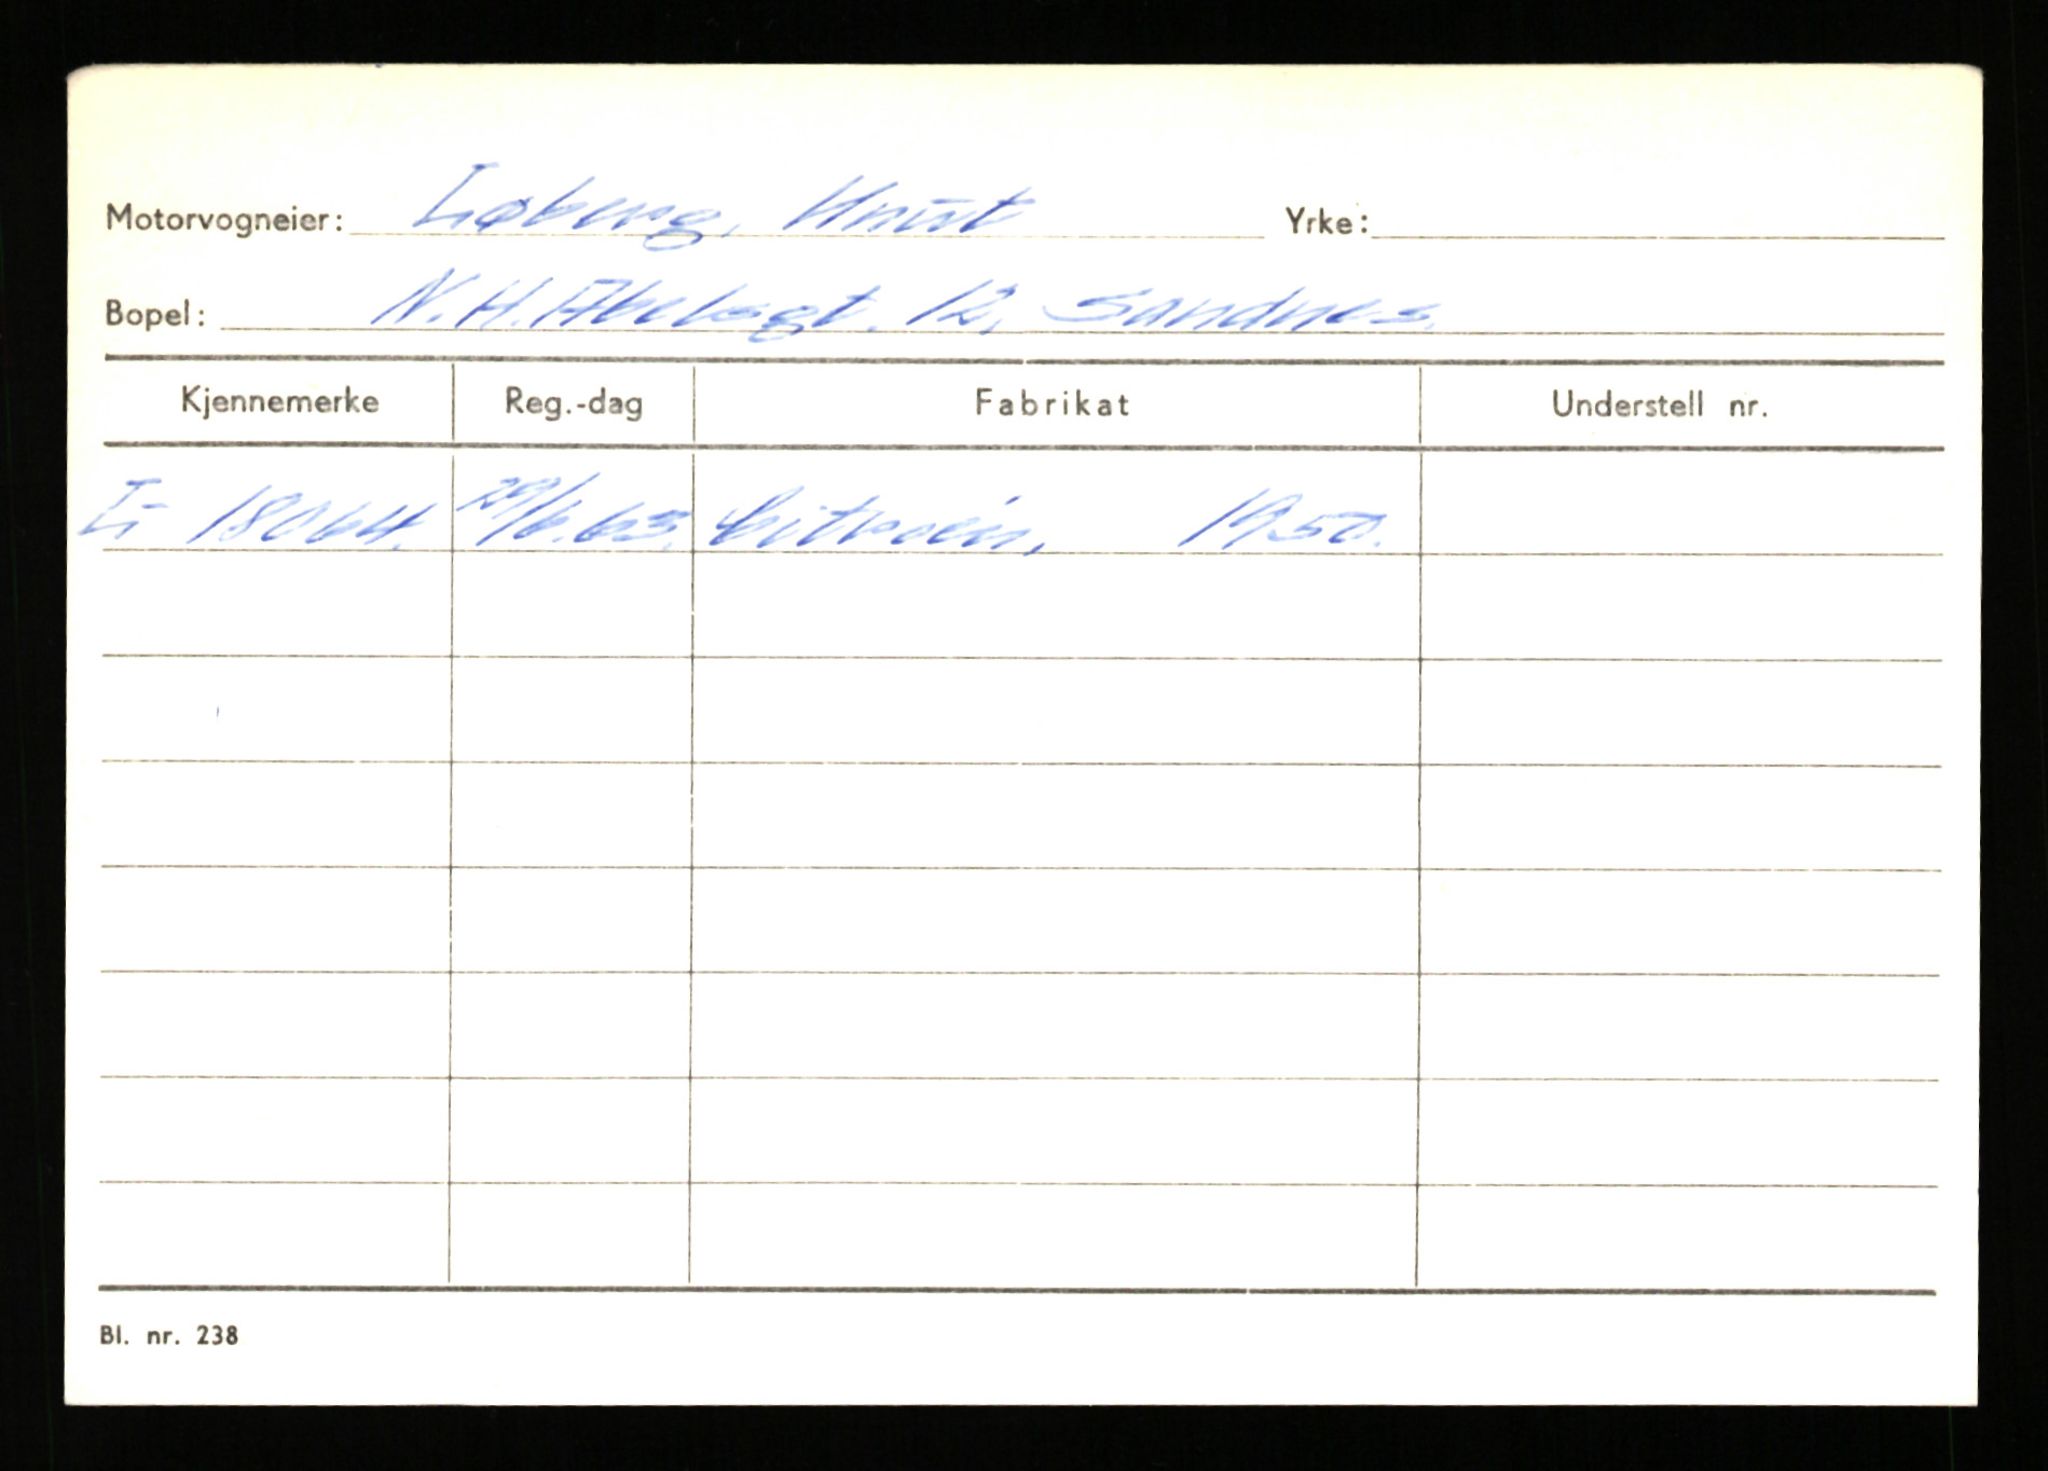 Motorvogneier: Løberg, Knut Yrke:
Bopel: N. H. Abelsgt. 12, Sandnes.
Kjennemerke Reg.-dag Fabrikat Understell nr.
L- 18064. 29/6.63. Citroën, 1950.
Bl. nr. 238